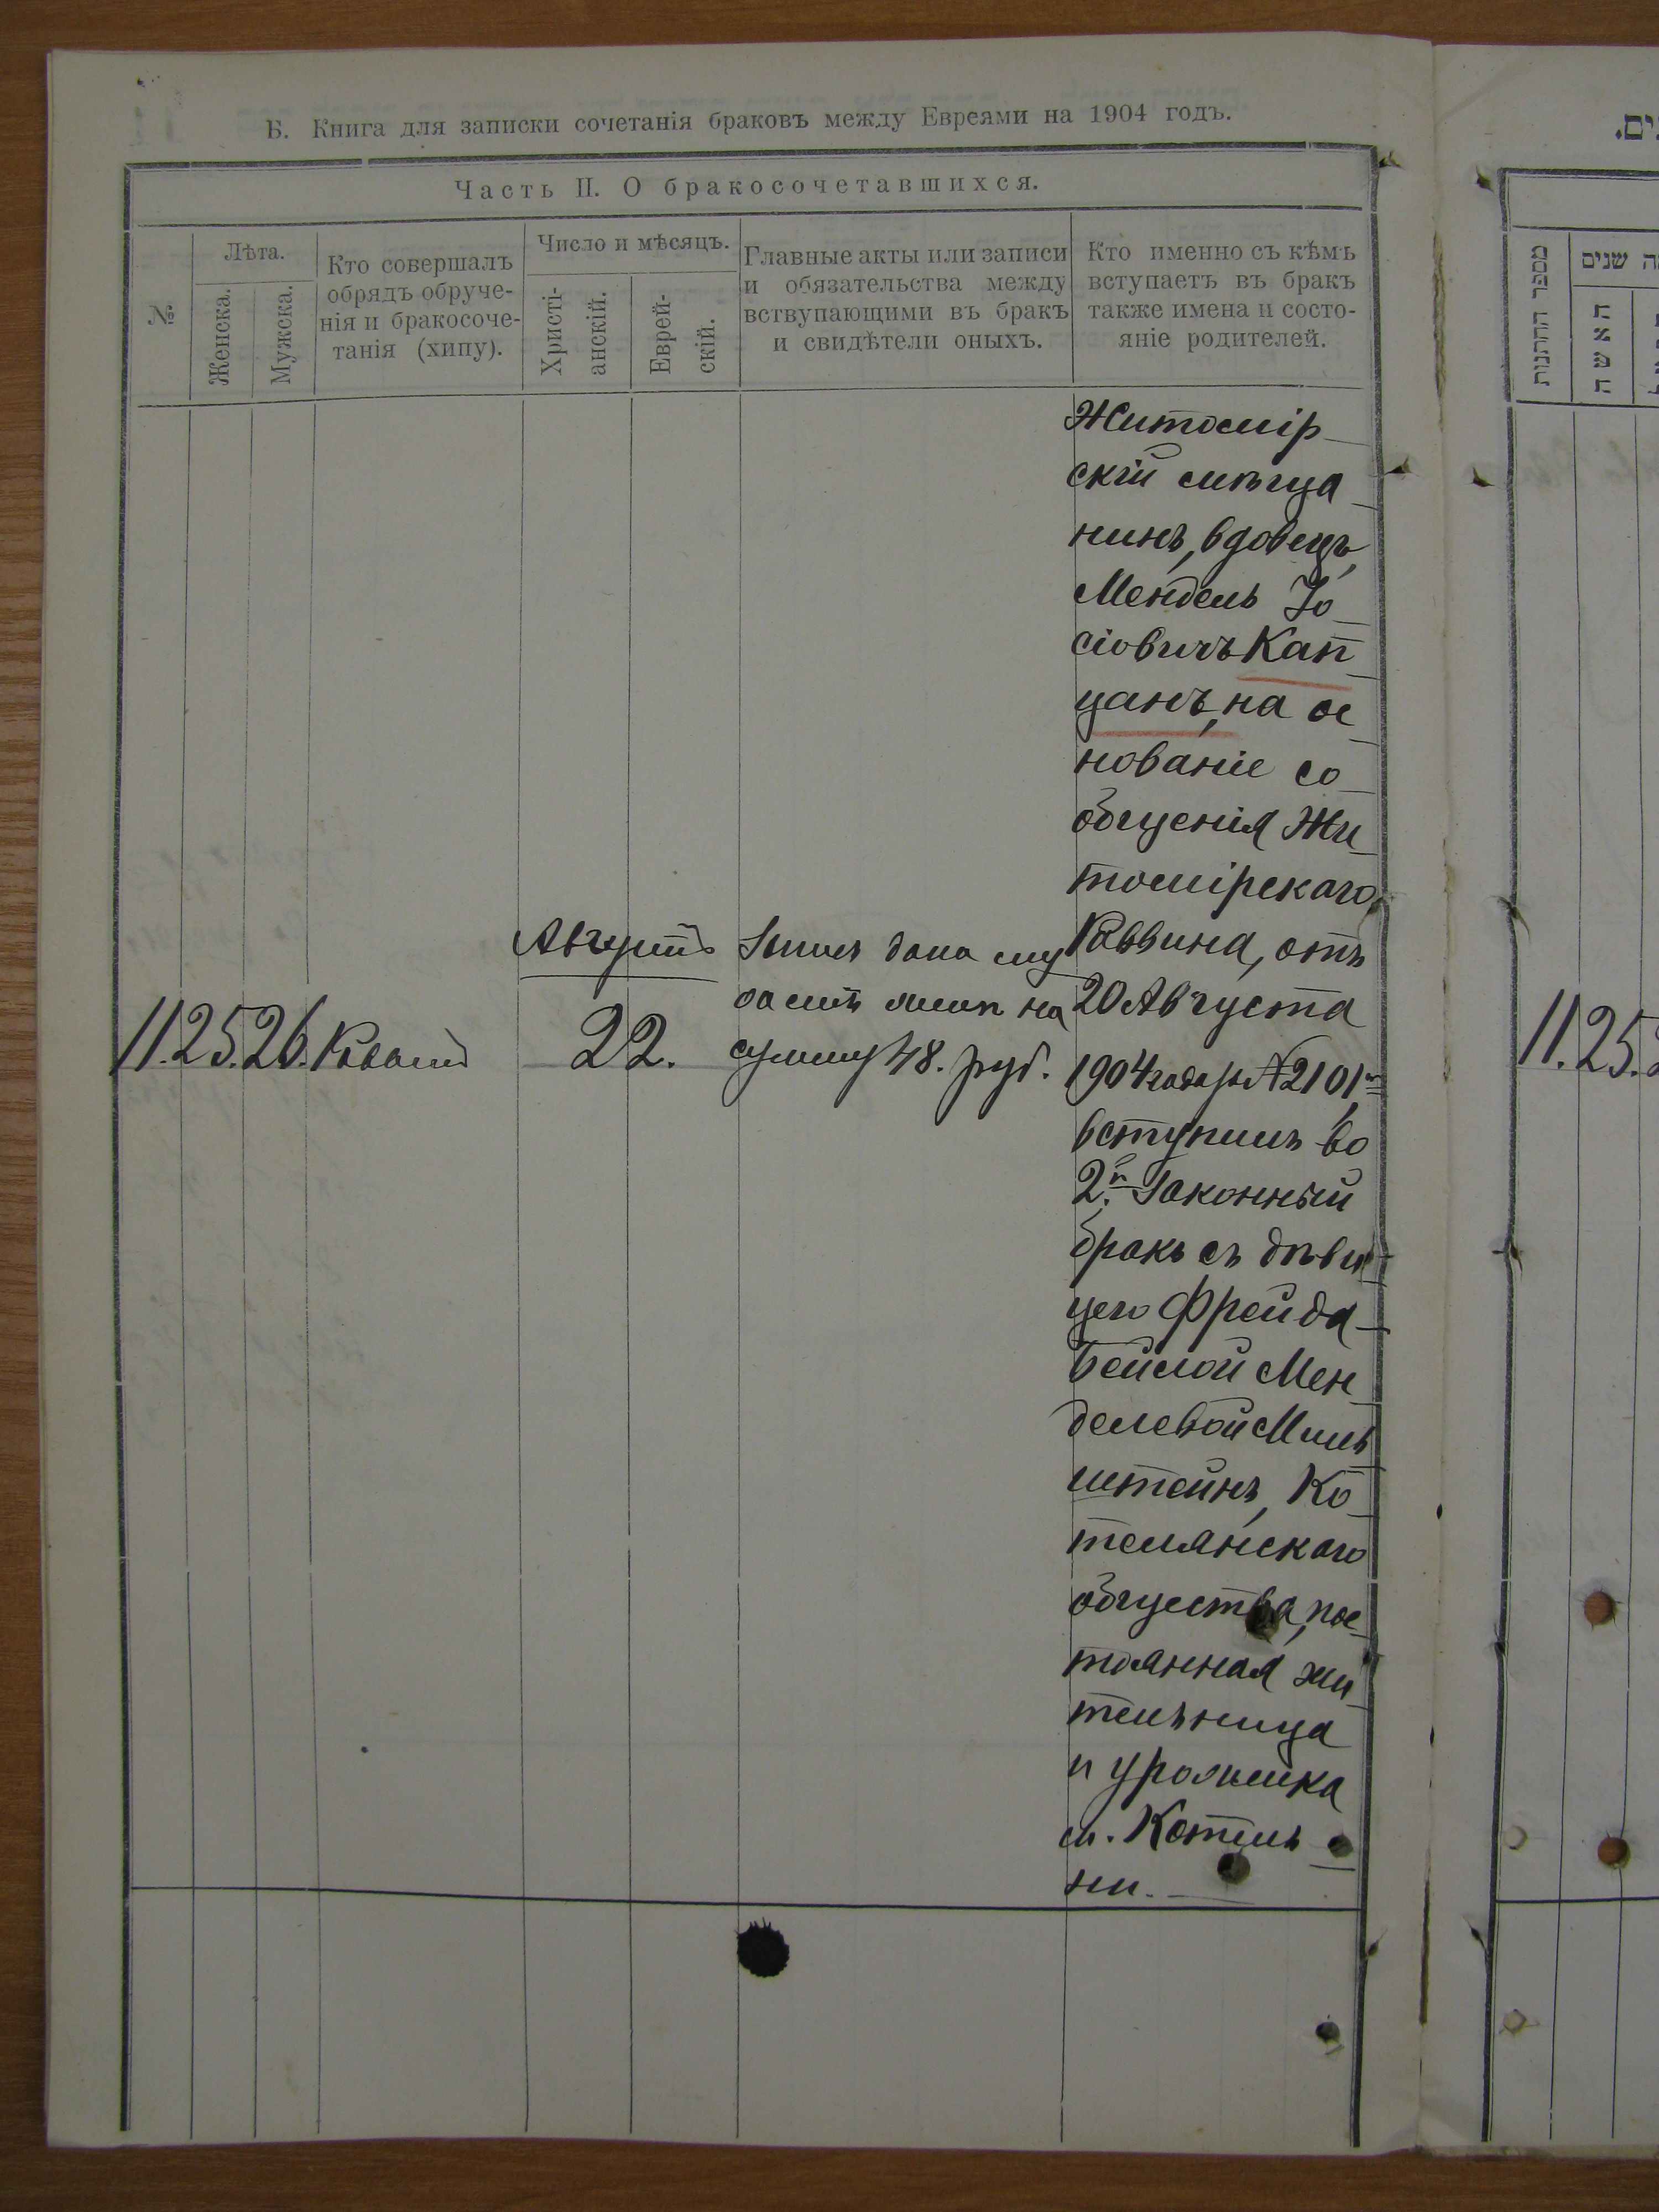 Б. Книга для записки сочетанія браковъ между Евреями на 1904 годъ.
Часть II. О бракосочетавшихся.
№
Лѣта.
Женска.
Мужска.
Кто совершалъ
обрядъ обруче-
нія и бракосоче-
танія (хипу).
Число и мѣсяцъ.
Христі-
анскій.
Еврей-
скій.
Главные акты или записи
и обязательства между
вствупающими въ бракъ
и свидѣтели оныхъ.
Кто именно съ кѣмъ
вступаетъ въ бракъ
также имена и состо-
яніе родителей.
11.
25.
26.
Августъ
22.
дана
на
сумму 48. руб.
Житомір-
скій мѣща-
нинъ, вдовецъ,
Мендель Іо-
сіовичъ Кап-
цанъ, на ос-
нованіе со-
общенія Жи-
томірскаго
Раввина, отъ
20 Августа
1904 года за №2101
вступилъ во
2й Законный
бракъ съ дѣви-
цею Фрейда-
Бейлой Мен-
делевой Миль-
штейнъ, Ко-
телянскаго
общества, пос-
тоянная жи-
тельница
и уроженка
м. Котель-
ни.
ים.
מספר החתנות
ה שנים
האשה
11.
25.